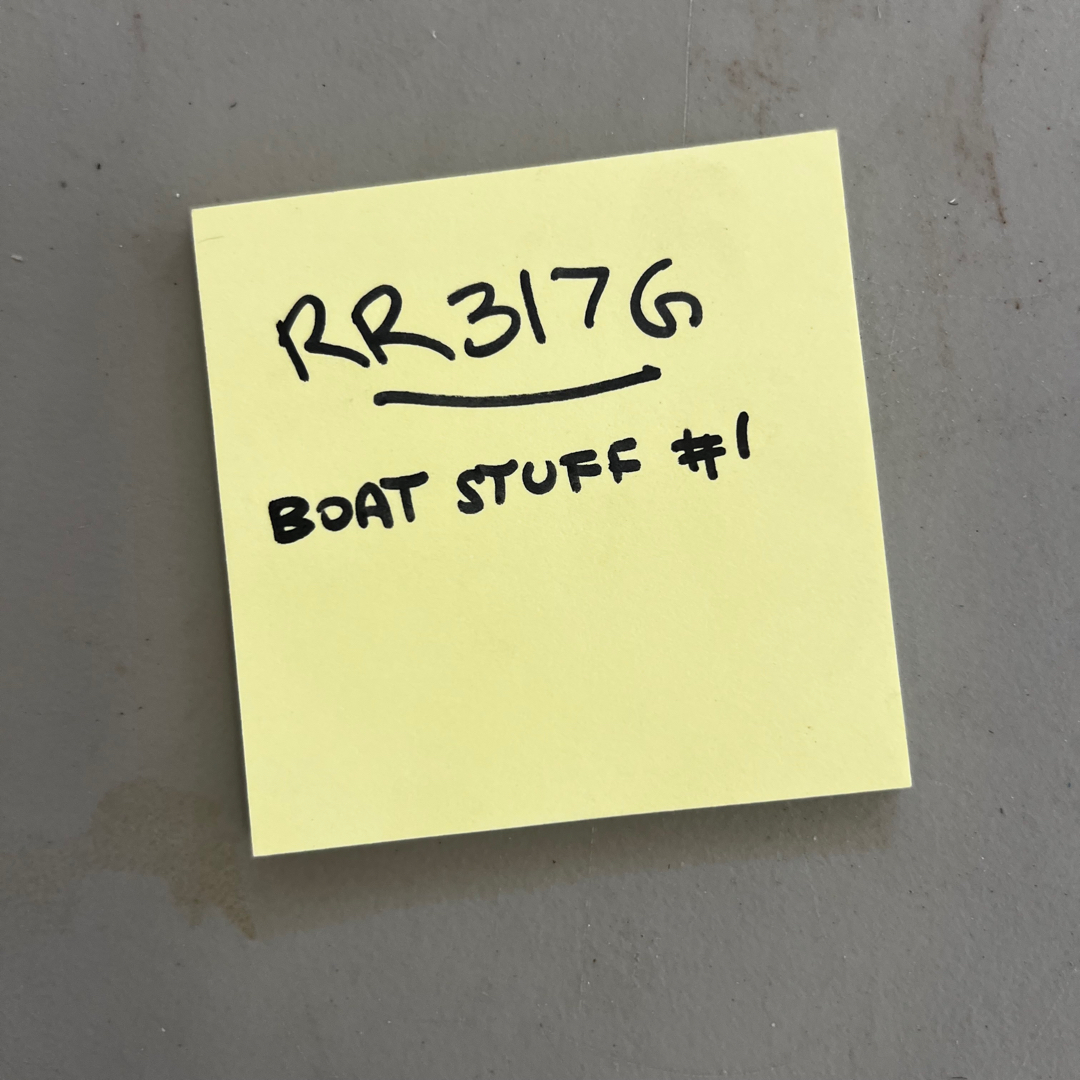 RR317G
BOAT STUFF #1